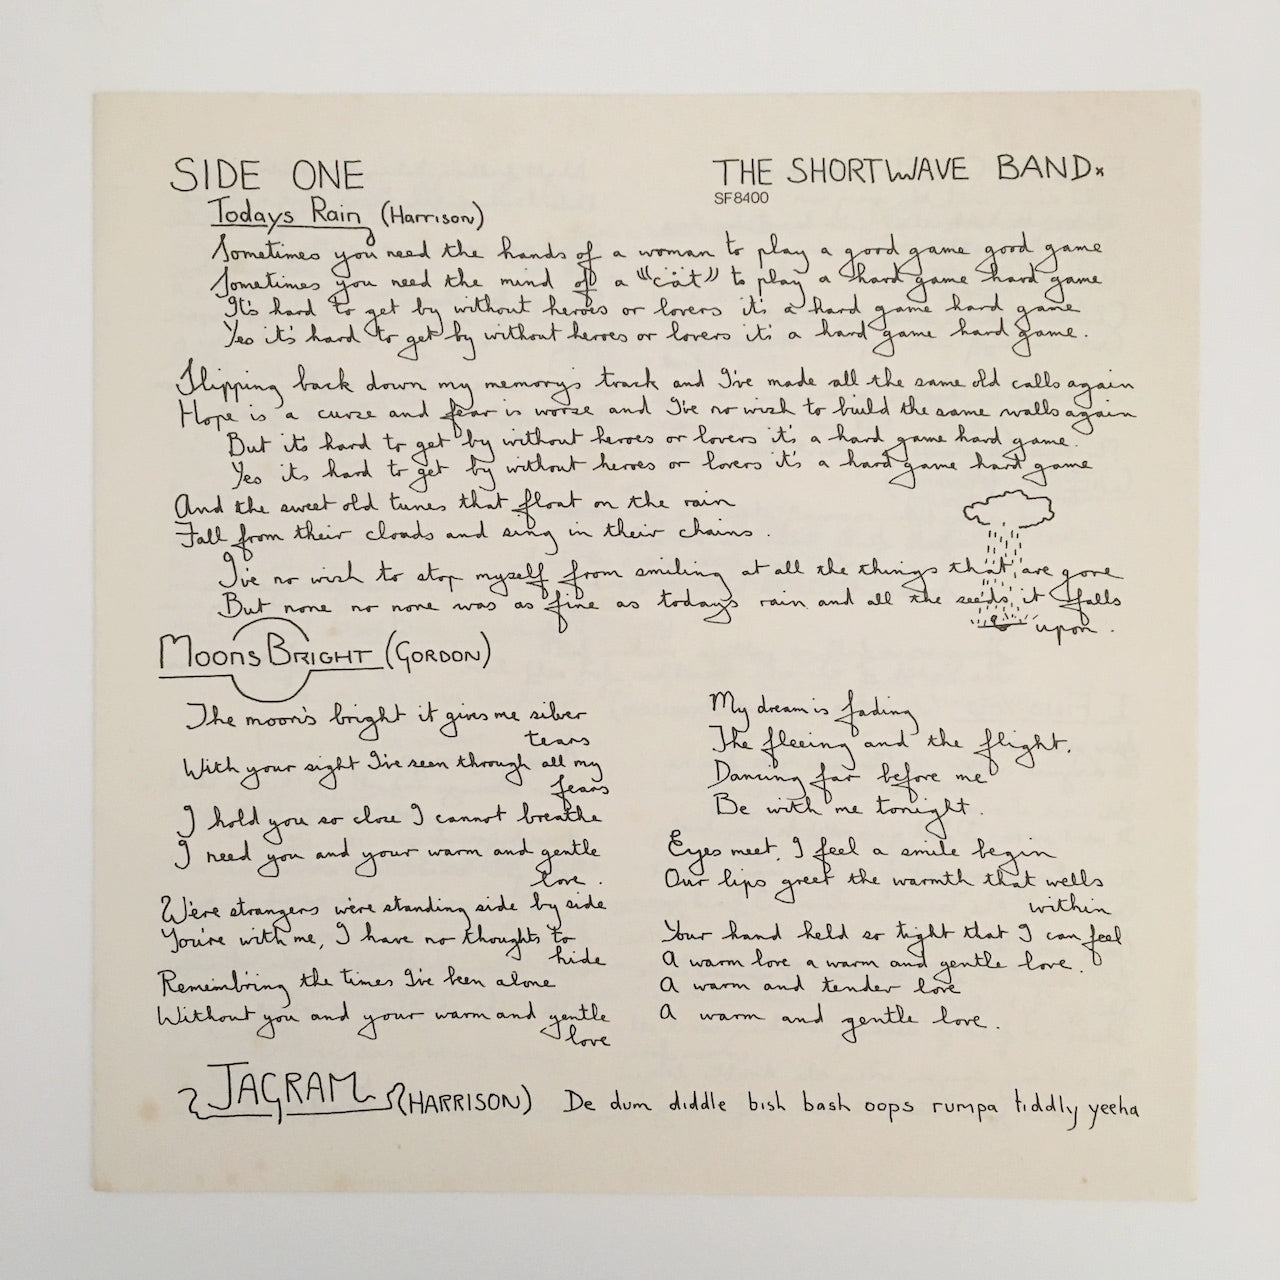 SIDE ONE
THE SHORTWAVE BAND
SF8400
Todays Rain (Harrison)
Sometimes you need the hands of a woman to play a good game good game
Sometimes you need the mind of a "cat" to play a hard game hard game
It's hard to get by without heroes or lovers it's a hard game hard game
Yes it's hard to get by without heroes or lovers it's a hard game hard game.
Slipping back down my memory's track and I've made all the same old calls again
Hope is a curse and fear is worse and I've no wish to build the same walls again
But it's hard to get by without heroes or lovers it's a hard game hard game.
Yes its hard to get by without heroes or lovers it's a hard game hard game
And the sweet old tunes that float on the rain
Fall from their clouds and sing in their chains.
I've no wish to stop myself from smiling at all the things that are gone
But none no none was as fine as today's rain and all the seeds it falls
upon.
Moons Bright (Gordon)
The moon's bright it gives me silver
tears
With your sight I've seen through all my
fears
I hold you so close I cannot breathe
I need you and your warm and gentle
love.
We're strangers we're standing side by side
You're with me, I have no thoughts to
hide
Rememb'ring the times I've been alone
Without you and your warm and gentle
love
My dream is fading
The fleeing and the flight.
Dancing far before me
Be with me tonight.
Eyes meet, I feel a smile begin
Our lips greet the warmth that wells
within
Your hand held so tight that I can feel
A warm love a warm and gentle love.
A warm and tender love
A warm and gentle love.
JAGRAM (HARRISON) De dum diddle bish bash oops rumpa tiddly yeeha